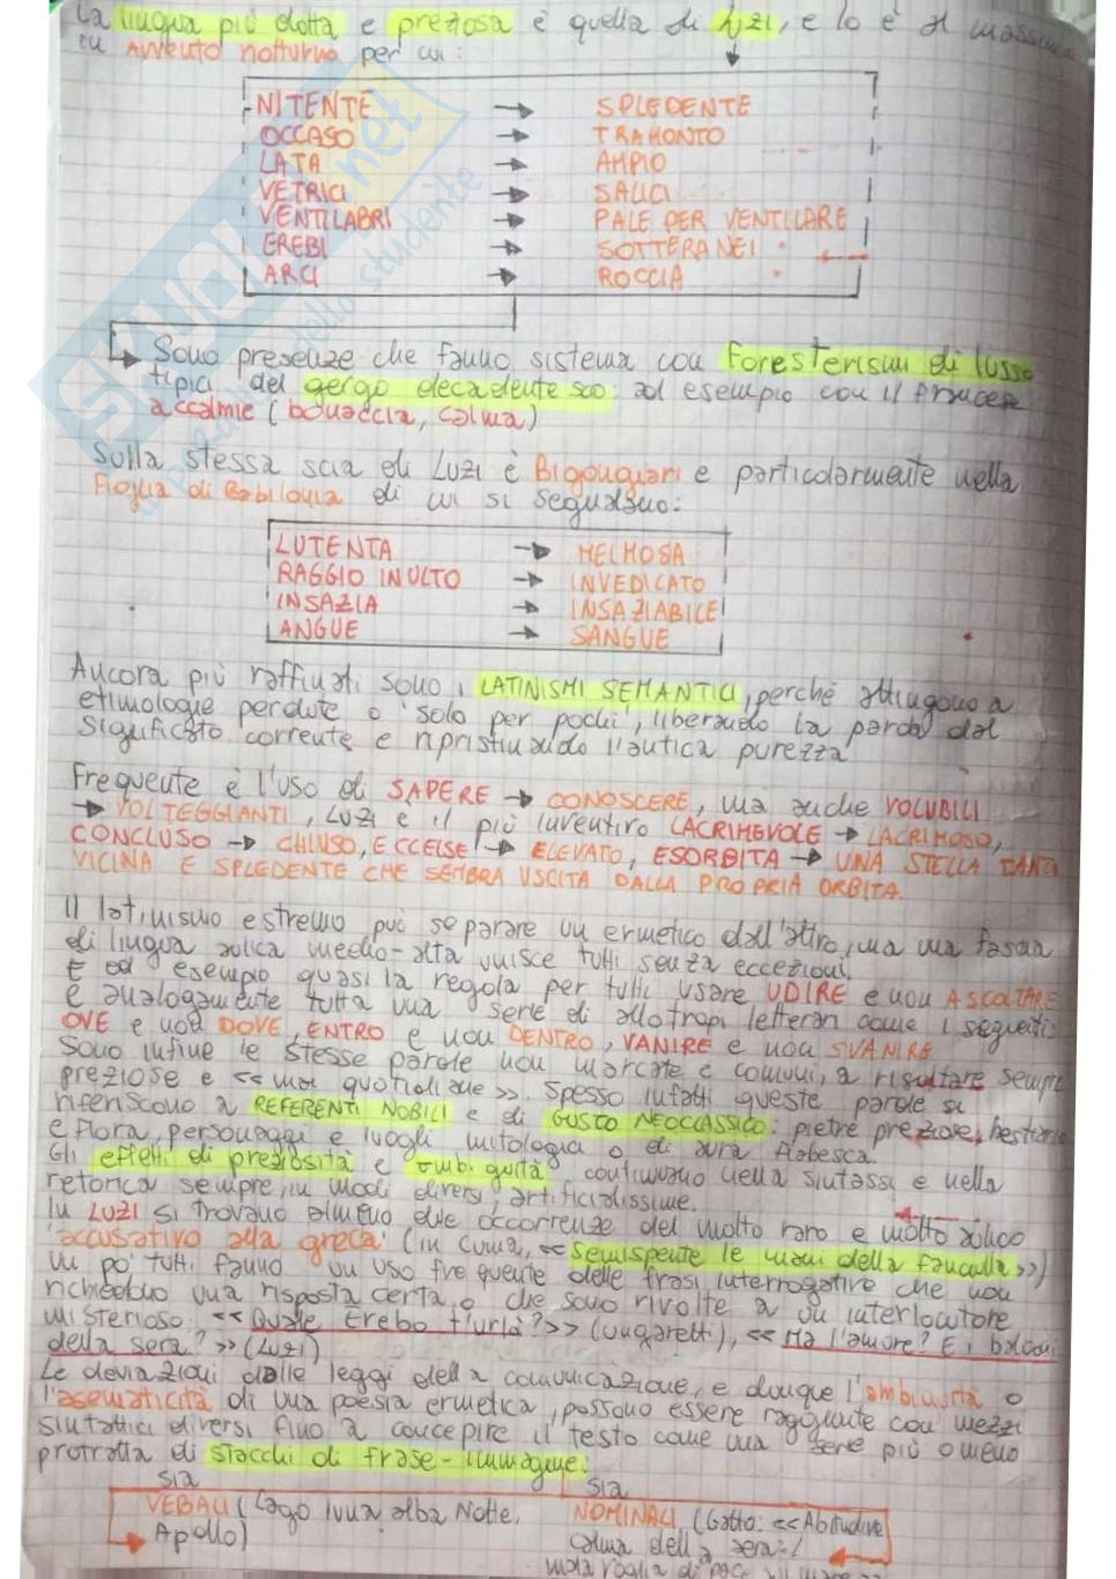 La lingua più dotta e preziosa è quella di Luzi, e lo è al massimo
in Avvento notturno per cui:
NITENTE → SPLEDENTE
OCCASO → TRAMONTO
LATA → AMPIO
VETRICI → SALICI
VENTILABRI → PALE PER VENTILARE
EREBI → SOTTERANEI
ARCI → ROCCIA
Sono presenze che fanno sistema con Foresterismi di lusso
tipici del gergo decadente so: ad esempio con il francese
accalmie (bonaccia, calma)
Sulla stessa scia di Luzi è Bigongiari e particolarmente nella
Figlia di Babilonia di cui si segnalano:
LUTENTA → MELMOSA
RAGGIO INULTO → INVEDICATO
INSAZIA → INSAZIABILE
ANGUE → SANGUE
Ancora più raffinati sono i LATINISMI SEMANTICI, perché attingono a
etimologie perdute o 'solo per pochi', liberando la parola dal
significato corrente e ripristinando l'antica purezza
Frequente è l'uso di SAPERE → CONOSCERE, ma anche VOLUBILI
→ VOLTEGGIANTI, Luzi è il più inventivo LACRIMEVOLE → LACRIMOSO,
CONCLUSO → CHIUSO, ECCELSE → ELEVATO, ESORBITA → UNA STELLA TANTO
VICINA E SPLEDENTE CHE SEMBRA USCITA DALLA PROPRIA ORBITA.
Il latinismo estremo può separare un ermetico dall'altro, ma una fascia
di lingua aulica medio-alta unisce tutti senza eccezioni.
È ad esempio quasi la regola per tutti usare UDIRE e non ASCOLTARE
e analogamente tutta una serie di allotropi letterari come i seguenti:
OVE e non DOVE, ENTRO e non DENTRO, VANIRE e non SVANIRE
Sono infine le stesse parole non marcate e comuni, a risultare sempre
preziose e <<mai quotidiane>>. Spesso infatti queste parole si
riferiscono a REFERENTI NOBILI e di GUSTO NEOCLASSICO: pietre preziose, bestiario
e flora, personaggi e luoghi mitologici o di aura fiabesca.
Gli effetti di preziosità e ambiguità continuano nella sintassi e nella
retorica sempre, in modi diversi, artificialissime.
In LUZI si trovano almeno due occorrenze del molto raro e molto aulico
'accusativo alla greca' (in Cuma, <<semispente le mani della fanciulla>>)
Un po' tutti fanno un uso frequente delle frasi interrogative che non
richiedono una risposta certa o che sono rivolte a un interlocutore
misterioso: <<Quale Erebo t'urlò?>> (Ungaretti), <<Ma l'amore? E i balconi
della sera?>> (Luzi)
Le deviazioni dalle leggi della comunicazione, e dunque l'ambiguità o
l'asematicità di una poesia ermetica, possono essere raggiunte con mezzi
sintattici diversi fino a concepire il testo come una serie più o meno
protratta di stacchi di frase-immagine:
sia sia
VEBALI (Gatto: Nella alba Notte, NOMINALI (Gatto: <<Abitudine
Apollo) calma della sera:/
mola voglia di pace